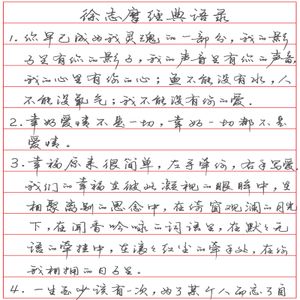 徐志摩经典语录
1.你早已成为我灵魂的一部分，我的影
子里有你的影子，我的声音里有你的声音，
我的心里有你的心；鱼不能没有水，人
不能没氧气；我不能没有你的爱。
2.幸好爱情不是一切，幸好一切都不是
爱情。
3.幸福原来很简单，左手牵你，右手写爱，
我们的幸福在彼此凝视的眼眸中，在
相聚离别的思念中，在倚窗观澜的月光
下，在闻香吟咏的词语里，在默默无
语的牵挂中，在滚滚红尘的牵手处，在你
我相拥的日子里。
4.一生至少该有一次，为了某个人而忘了自